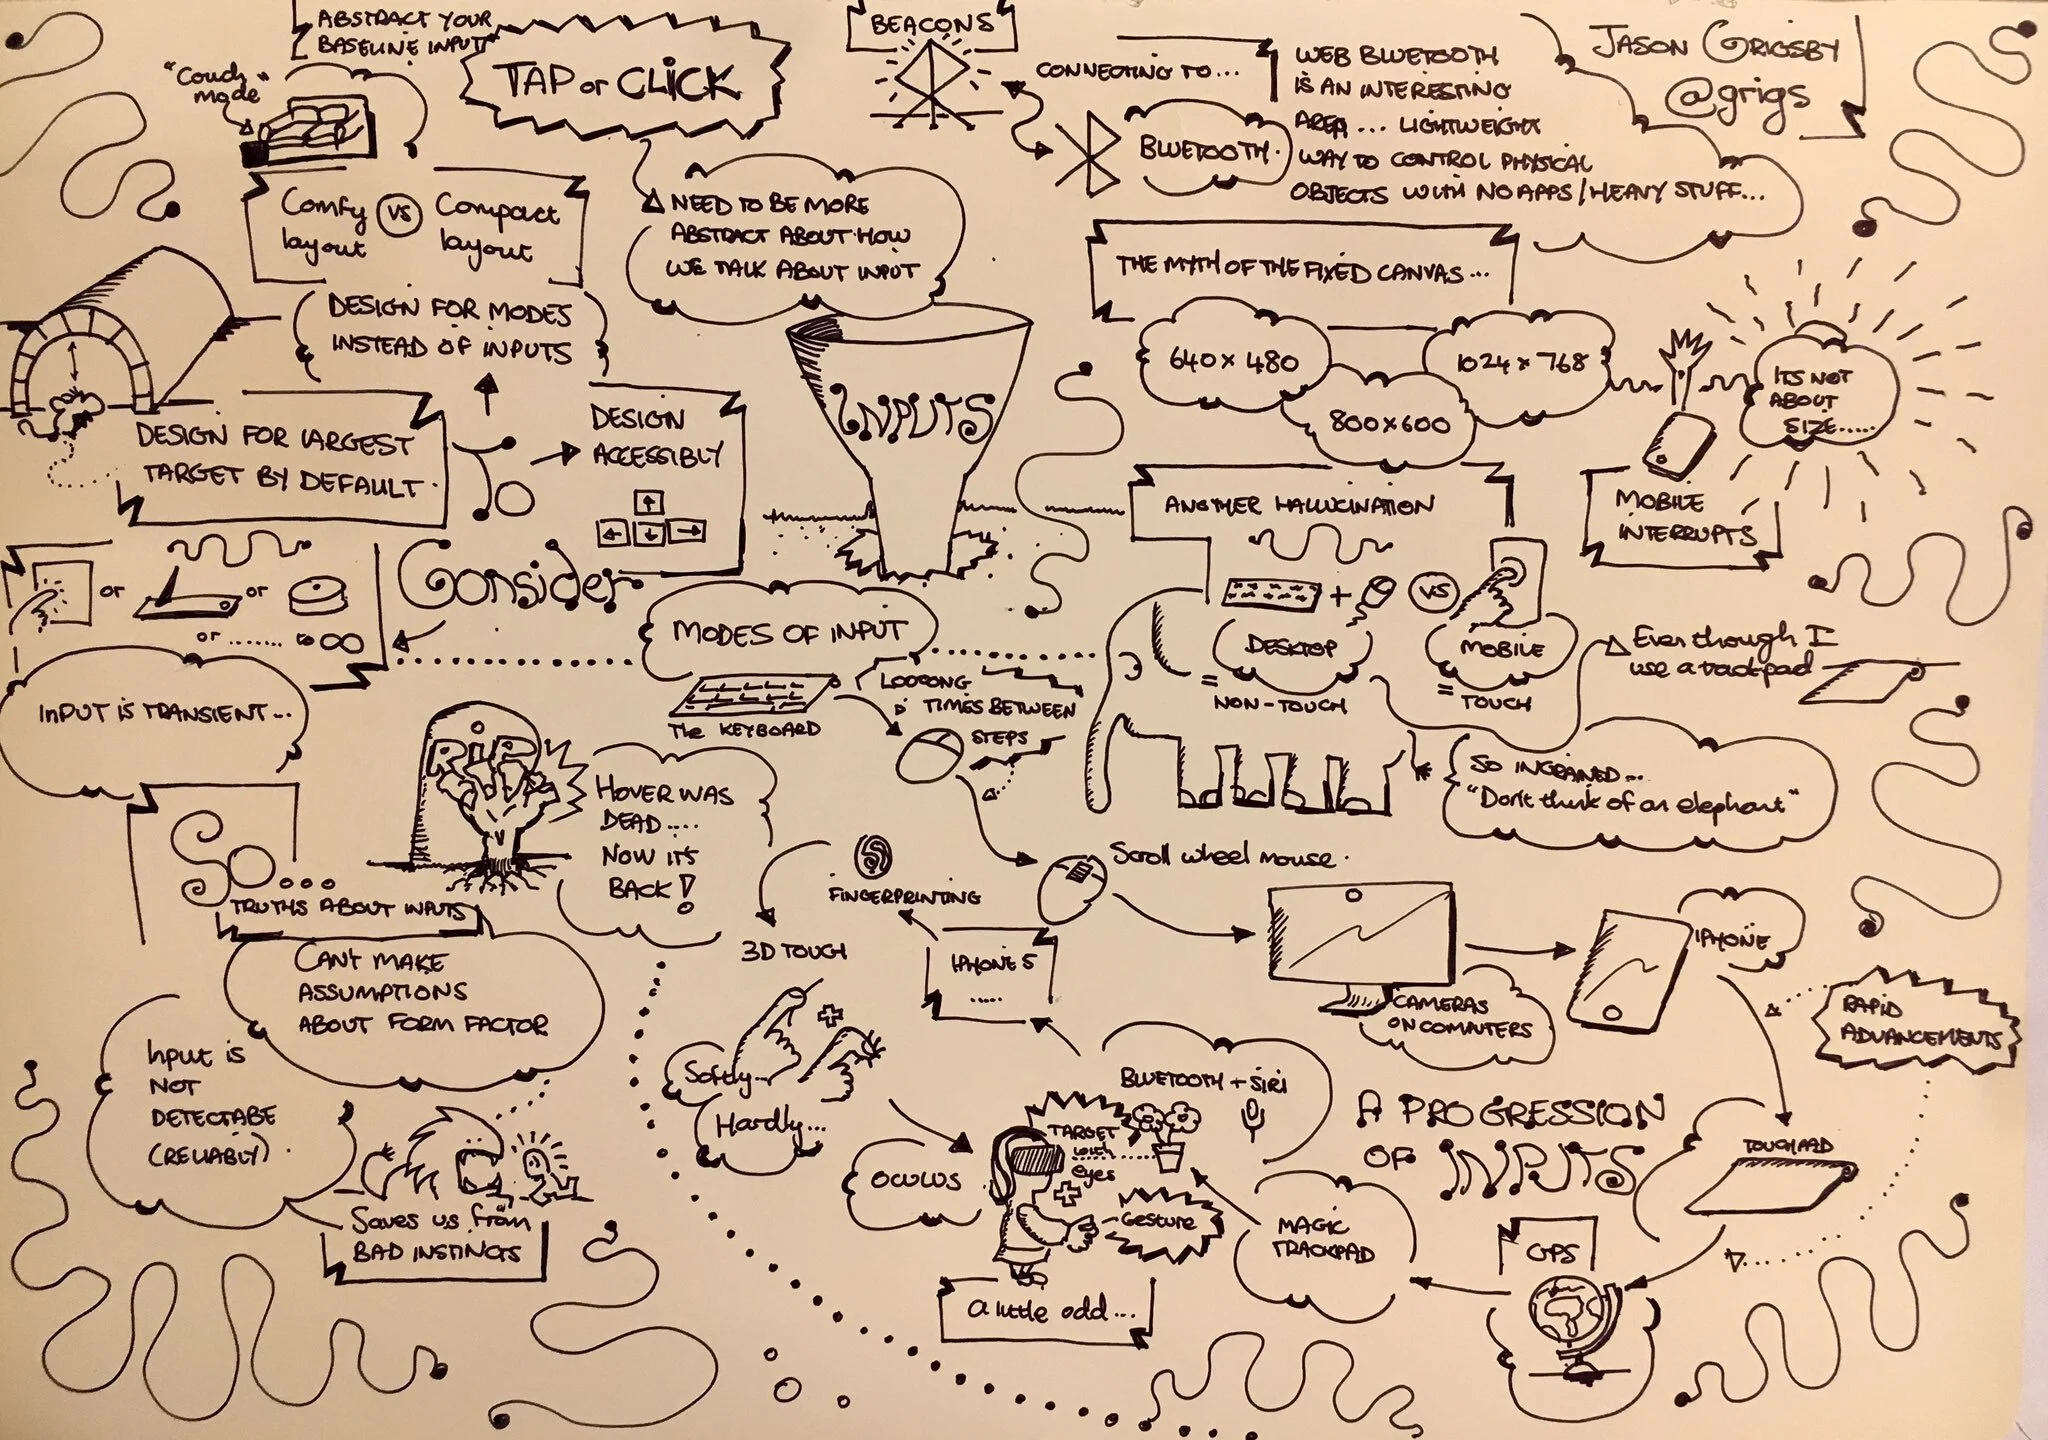 ABSTRACT YOUR
BASELINE INPUT
"Couch
mode"
TAP or CLICK
BEACONS
CONNECTING TO...
BLUETOOTH.
WEB BLUETOOTH
IS AN INTERESTING
AREA... LIGHTWEIGHT
WAY TO CONTROL PHYSICAL
OBJECTS WITH NO APPS/HEAVY STUFF...
JASON GRIGSBY
@grigs
Comfy
layout
VS
Compact
layout
NEED TO BE MORE
ABSTRACT ABOUT HOW
WE TALK ABOUT INPUT
DESIGN FOR MODES
INSTEAD OF INPUTS
THE MYTH OF THE FIXED CANVAS...
640 x 480
1024 x 768
800x600
ITS NOT
ABOUT
SIZE.....
MOBILE
INTERRUPTS
INPUTS
DESIGN FOR LARGEST
TARGET BY DEFAULT.
DESIGN
ACCESSIBLY
ANOTHER HALLUCINATION
+
VS
DESKTOP
= NON-TOUCH
MOBILE
= TOUCH
Even though I
use a trackpad
SO INGRAINED...
"Don't think of an elephant"
Consider
or
or
or ....... to ∞
INPUT IS TRANSIENT...
MODES OF INPUT
The KEYBOARD
LOOOONG
TIMES BETWEEN
STEPS
Scroll wheel mouse.
RIP
HOVER WAS
DEAD....
NOW IT'S
BACK!
TRUTHS ABOUT INPUTS
CAN'T MAKE
ASSUMPTIONS
ABOUT FORM FACTOR
Input is
NOT
DETECTABE
(RELIABLY).
Saves us from
BAD INSTINCTS
FINGERPRINTING
3D TOUCH
IPHONE 5
.....
CAMERAS
ON COMPUTERS
IPHONE
RAPID
ADVANCEMENTS
Softly...
+
Hardly...
BLUETOOTH + SIRI
A PROGRESSION
OF INPUTS
TOUCHPAD
OCULUS
TARGET
with
eyes
+
Gesture
A little odd...
MAGIC
TRACKPAD
GPS